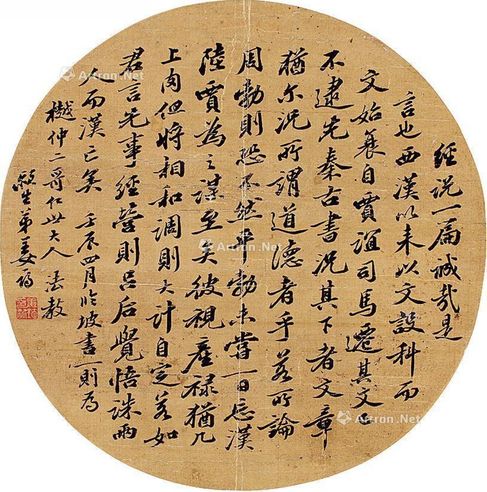 經說一篇誠哉是
言也西漢以未以文設科而
文始衰自賈誼司馬遷其文
不逮先秦古書況其下者文章
猶尔況所謂道德者乎若所論
周勃則恐不然平勃未嘗一日忘漢
陸賈為之謀至矣彼視產祿猶几
上肉但將相和調則大計自定若如
君言先事經營則呂后覺悟誅兩
人而漢亡矣 壬辰四月臨坡書一則為
樾仲二哥仁世大人法教
弟姜筠
Artron.Net
Artron.Net
Artron.Net
Artron.Net